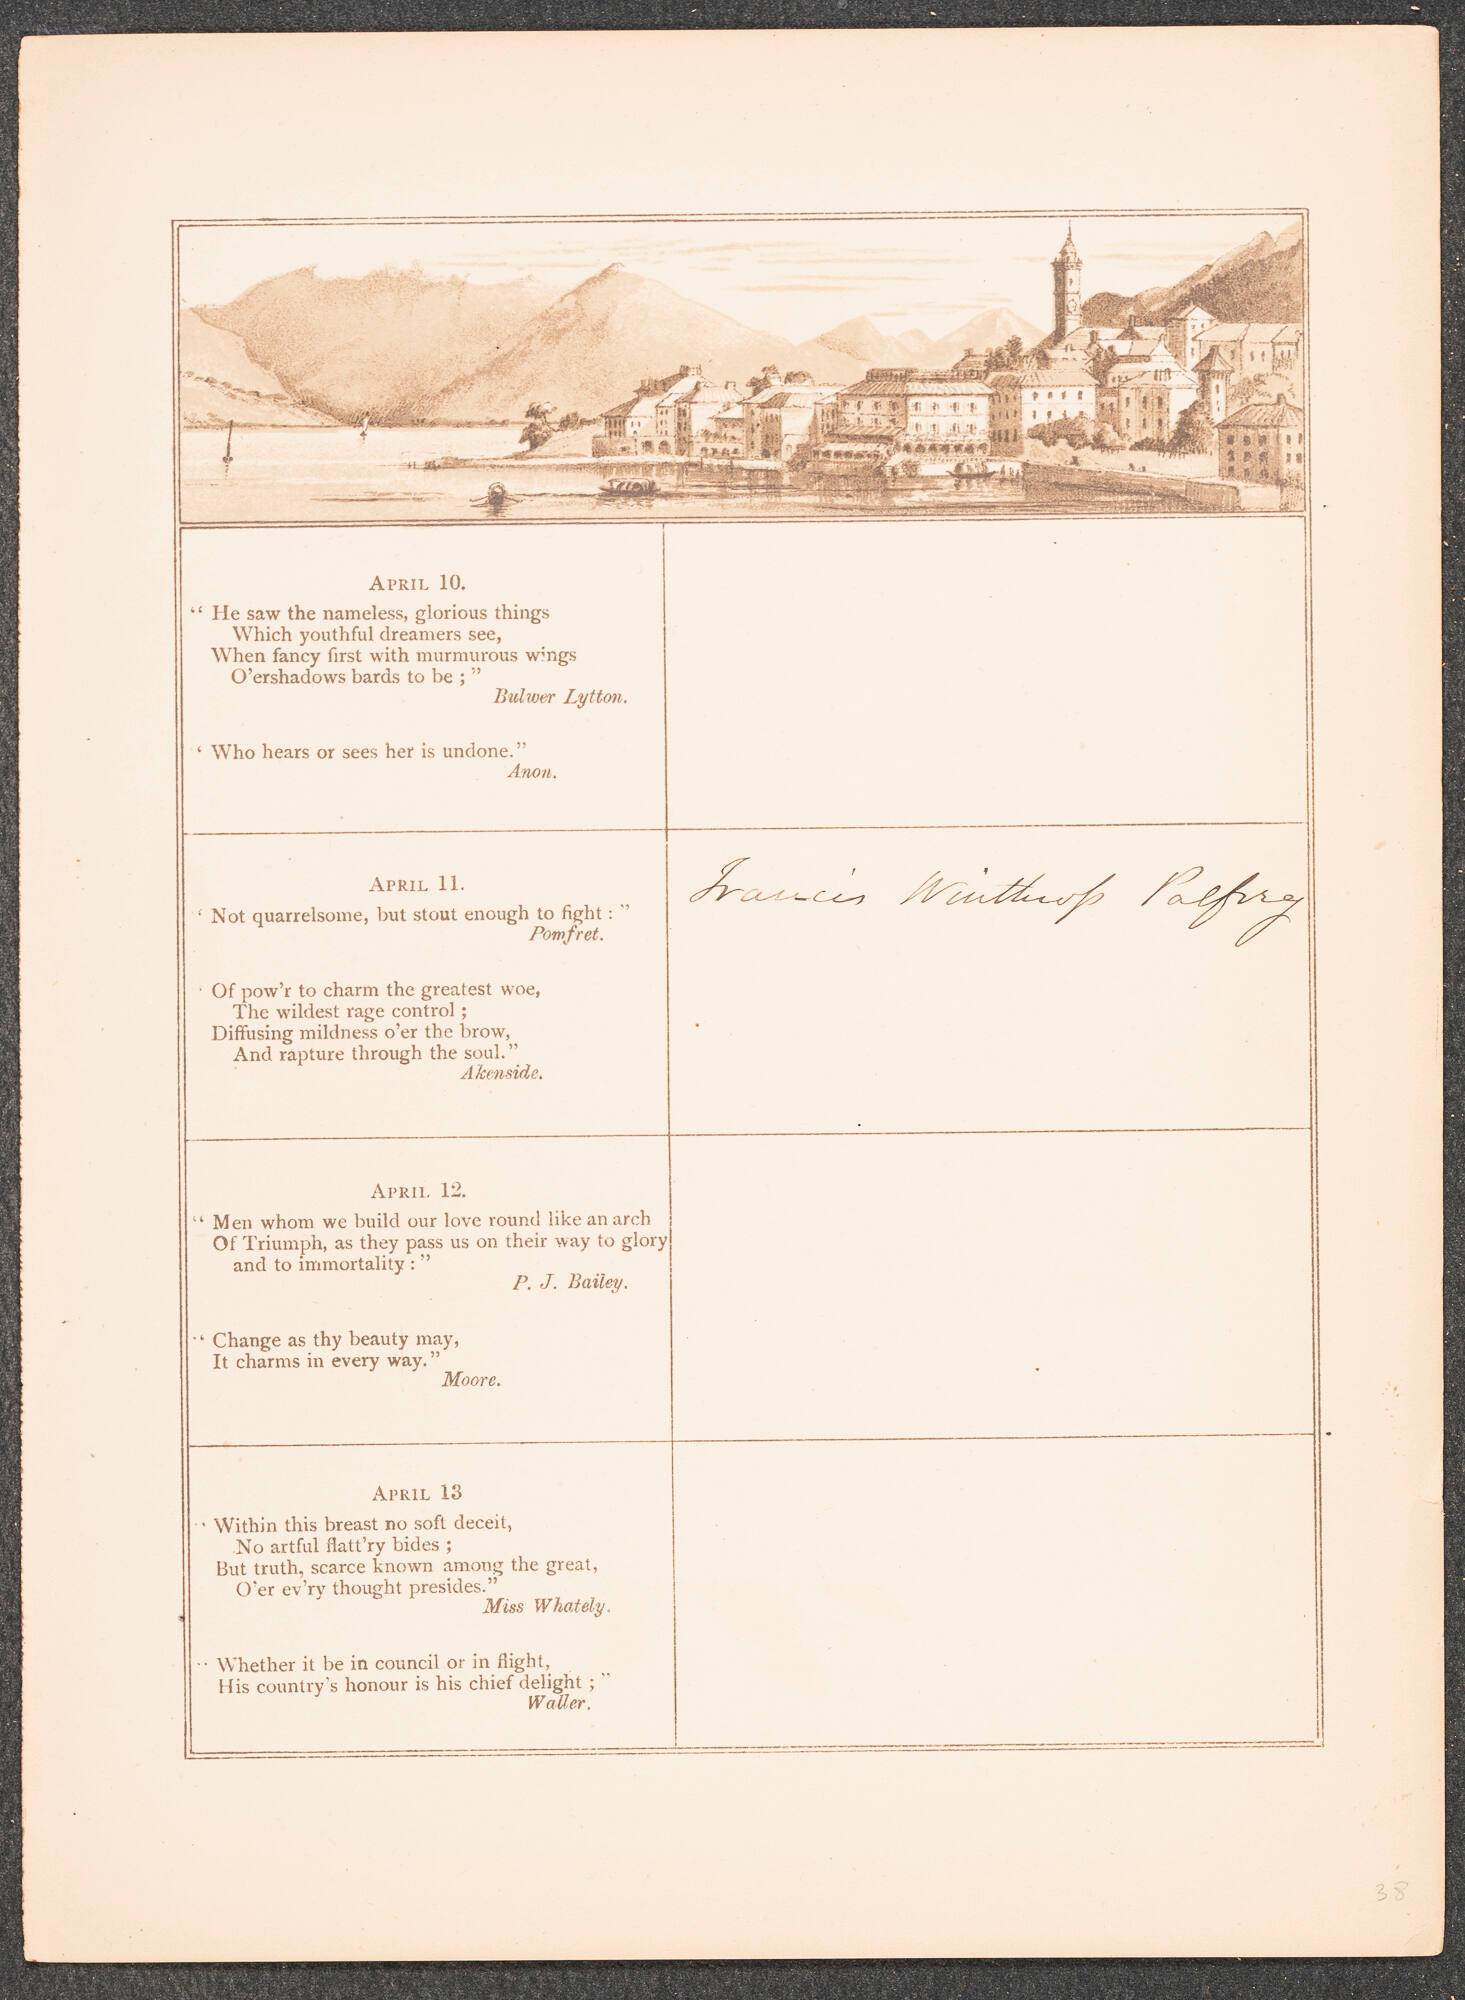 APRIL 10.
“ He saw the nameless, glorious things
Which youthful dreamers see,
When fancy first with murmurous wings
O’ershadows bards to be ; ”
Bulwer Lytton.
‘ Who hears or sees her is undone.”
Anon.
APRIL 11.
‘ Not quarrelsome, but stout enough to fight : ”
Pomfret.
Francis Winthrop Palfrey
‘ Of pow’r to charm the greatest woe,
The wildest rage control ;
Diffusing mildness o’er the brow,
And rapture through the soul.”
Akenside.
APRIL 12.
“ Men whom we build our love round like an arch
Of Triumph, as they pass us on their way to glory
and to immortality : ”
P. J. Bailey.
“ Change as thy beauty may,
It charms in every way.”
Moore.
APRIL 13
“ Within this breast no soft deceit,
No artful flatt’ry bides ;
But truth, scarce known among the great,
O’er ev’ry thought presides.”
Miss Whately.
“ Whether it be in council or in flight,
His country’s honour is his chief delight ; ”
Waller.
38